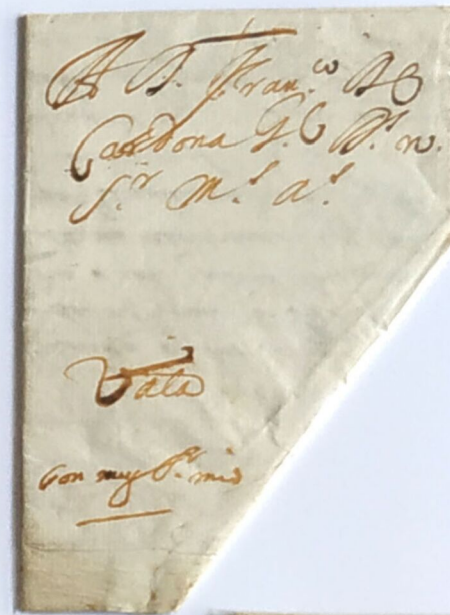 A D. Fran.co de
Cardona G. e D.s n.
S.r m.s a.s
Vala
Con muy S.r mio